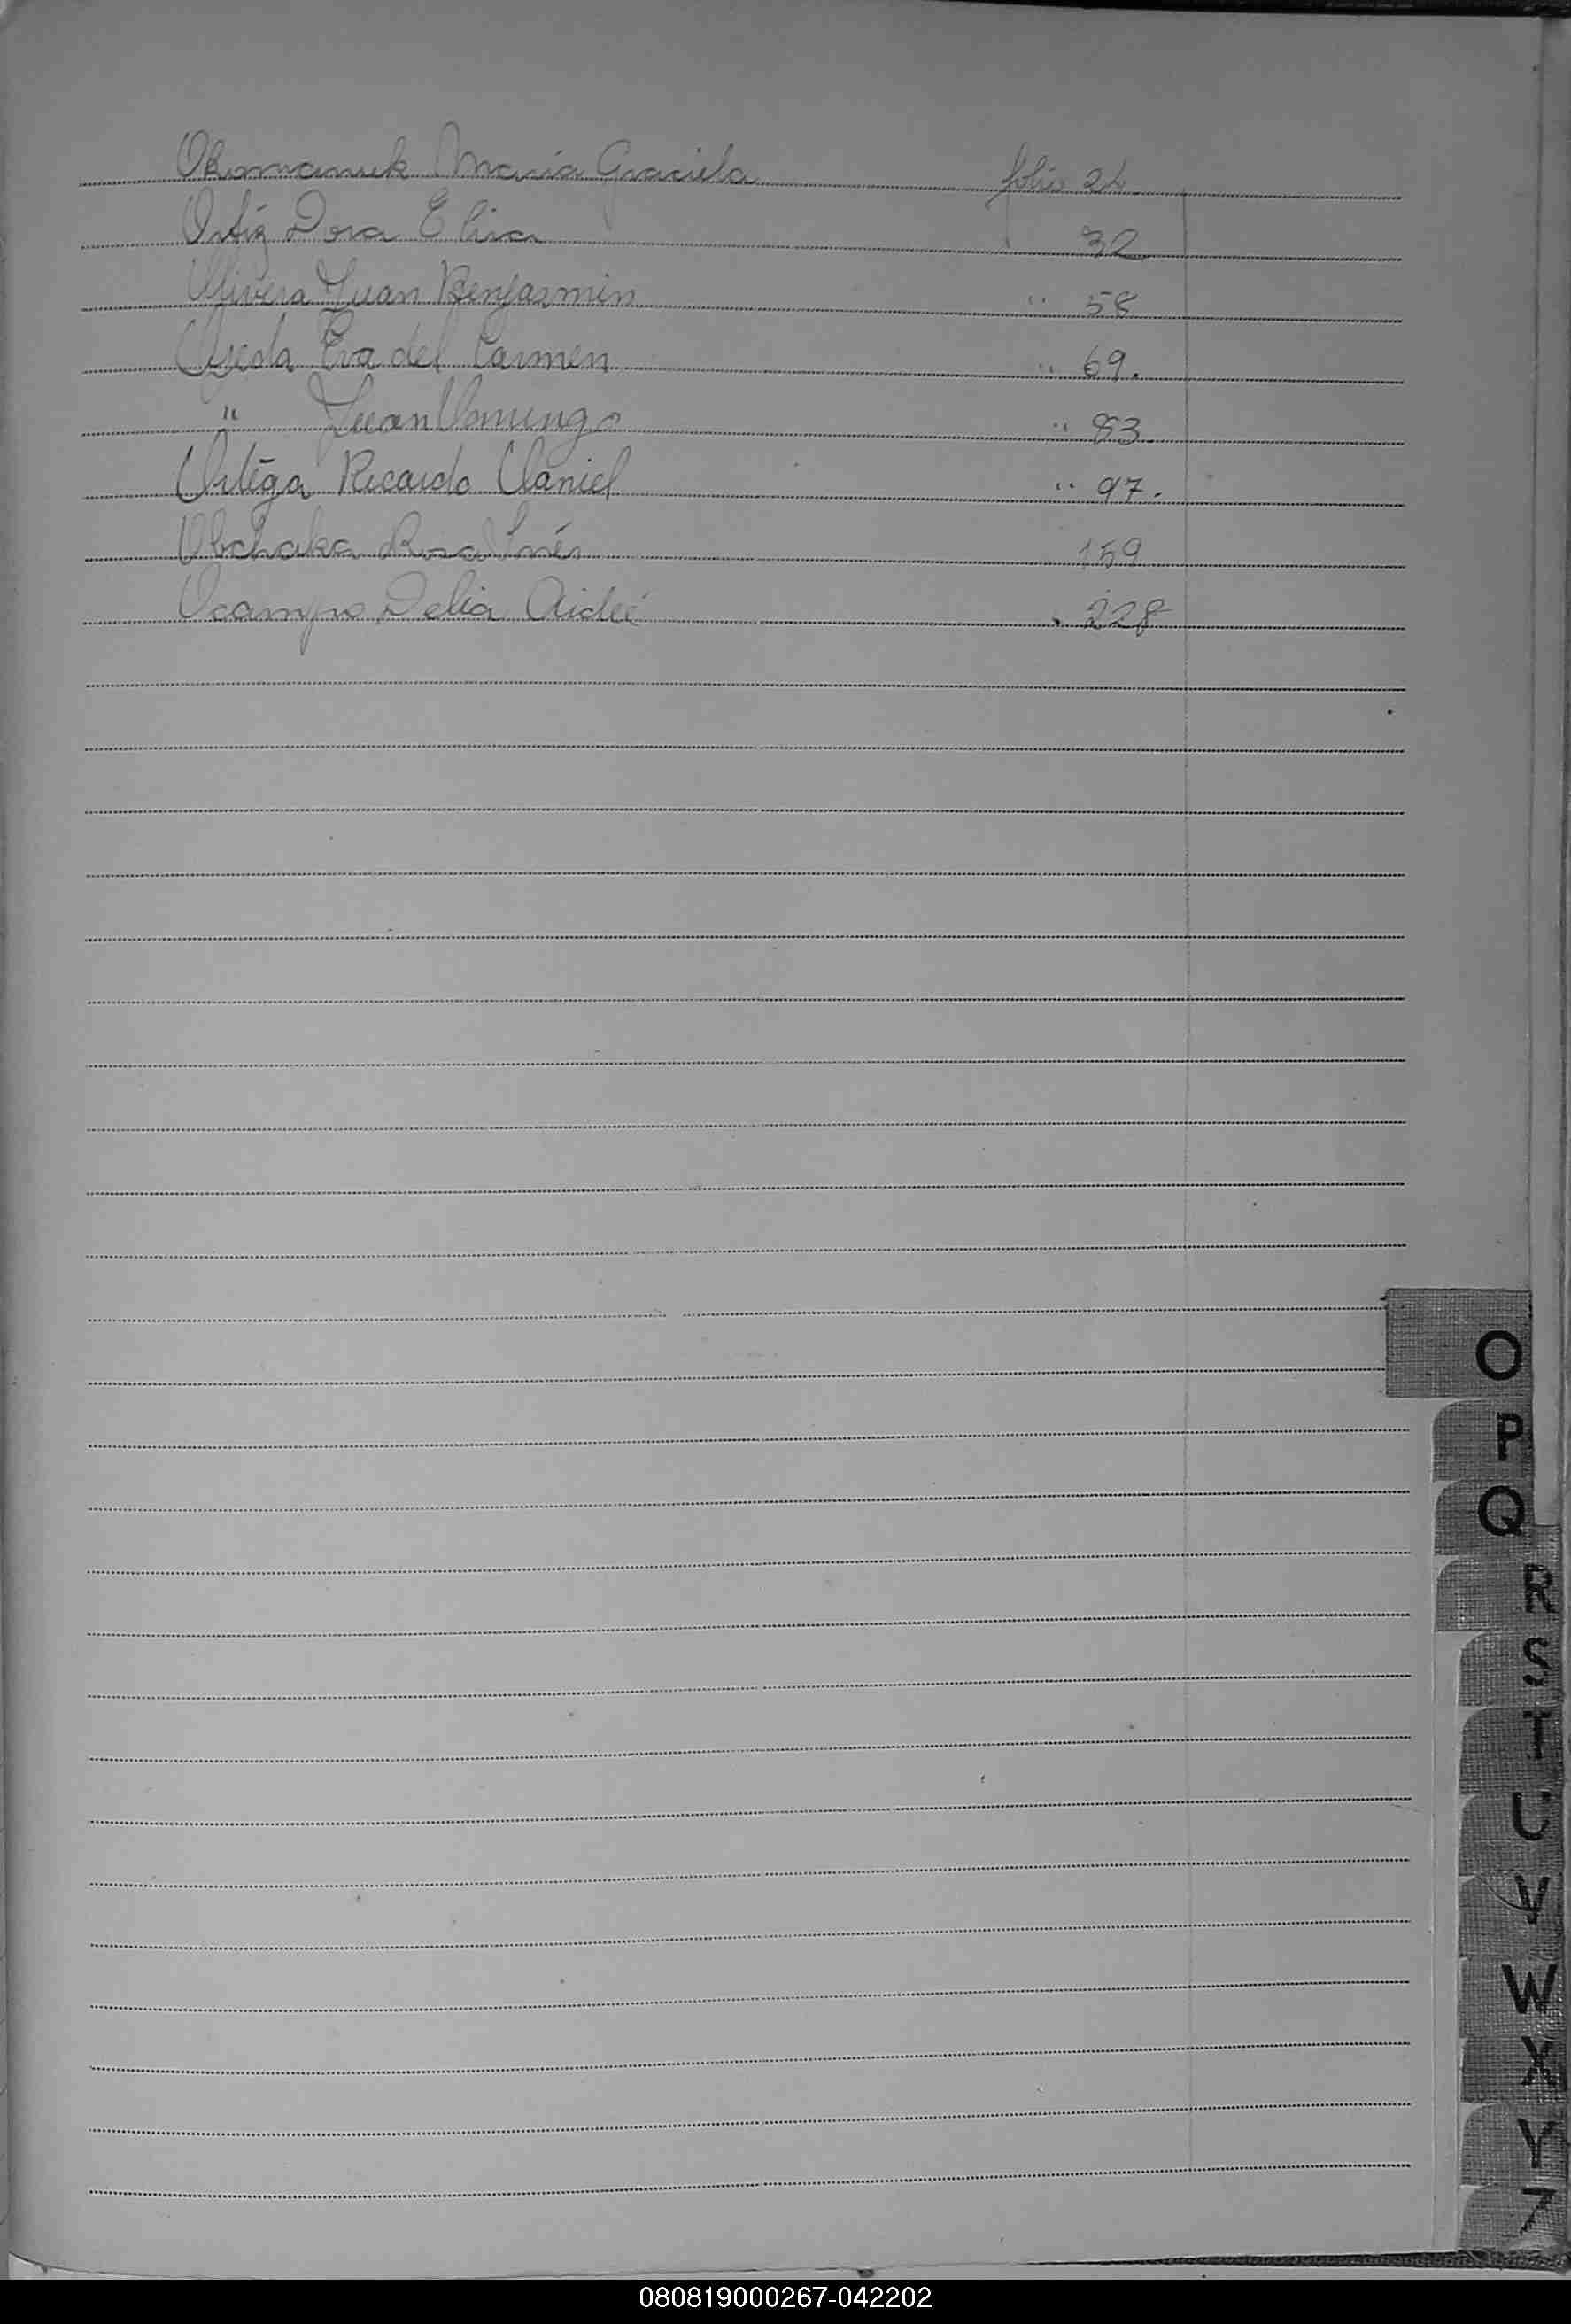 Okomaniuk Maria Graciela folio 21
Ortiz Dora Elisa 32
Olivera Juan Benjasmin " 58
Ojeda Eva del Carmen " 69.
" Juan Domingo " 83
Ortega Ricardo Daniel " 97.
Obchaka Rosa Inés 159
Ocampo Delia Aideé . 228
O
P
Q
R
S
T
U
V
W
X
Y
Z
080819000267-042202